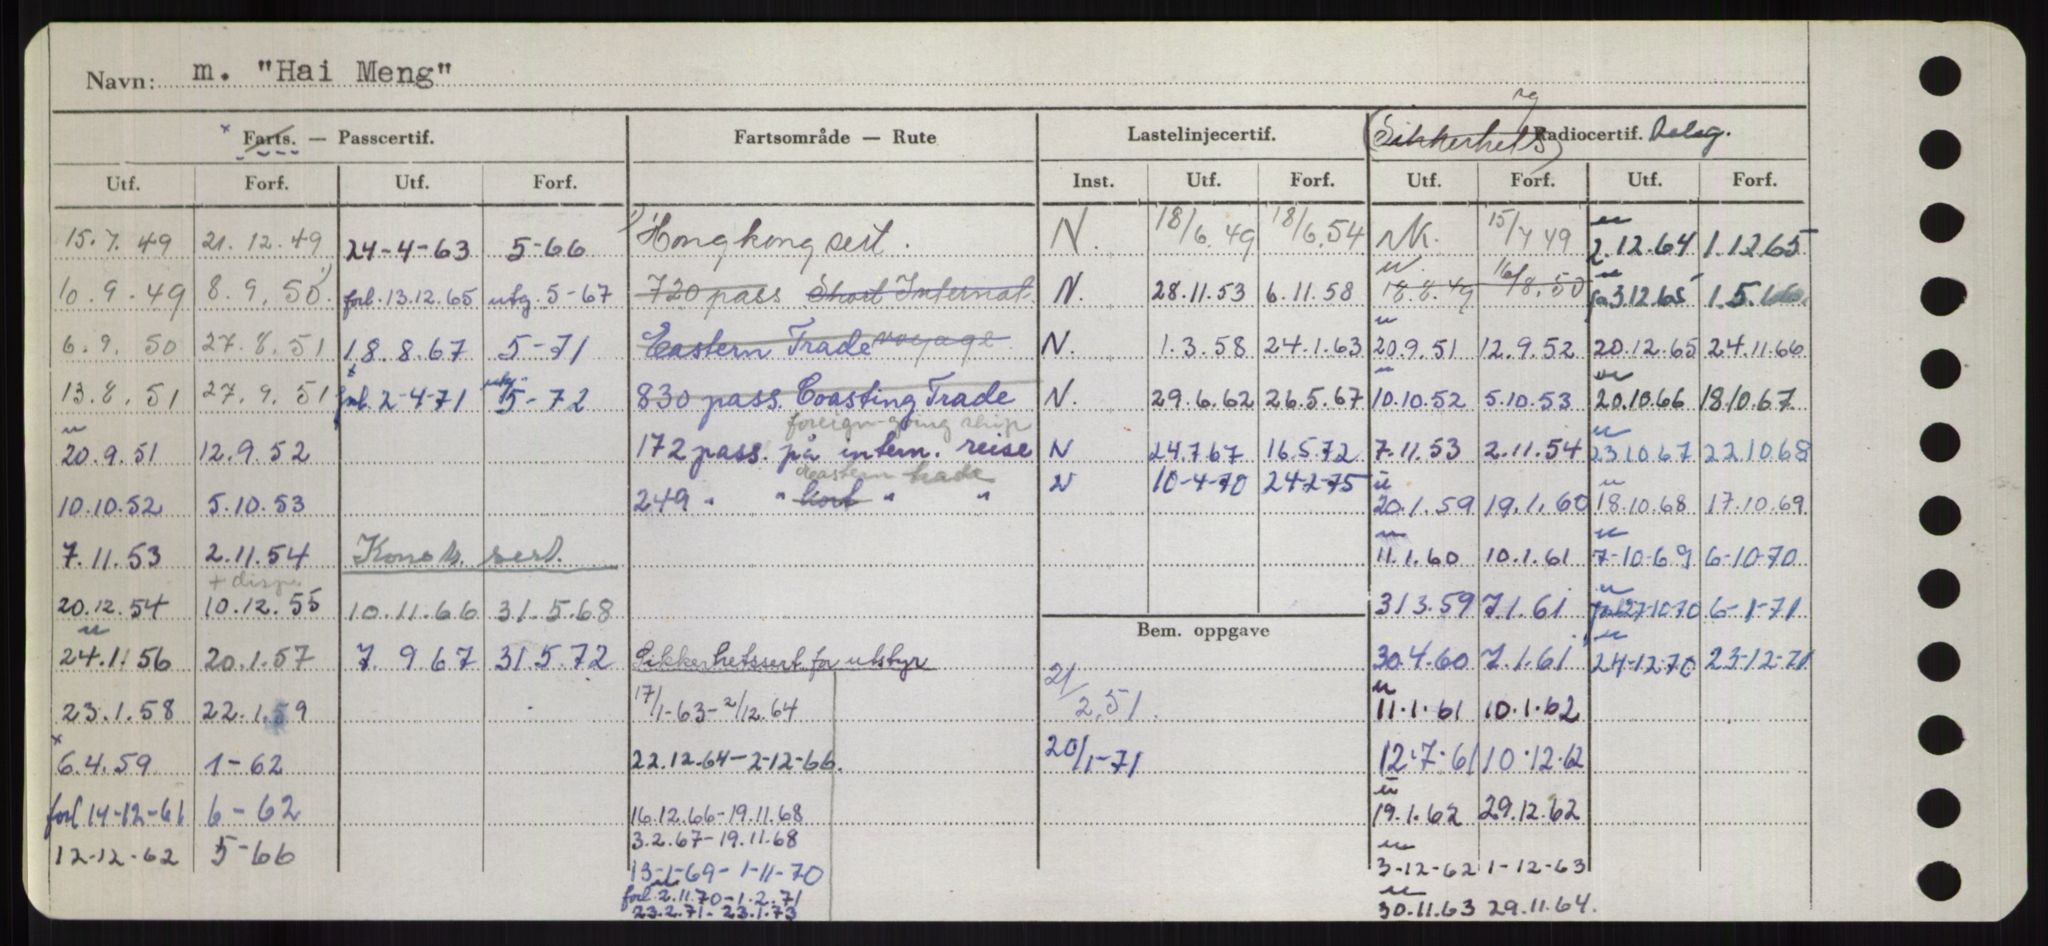 Navn: m. "Hai Meng"
Farts. — Passcertif. Fartsområde — Rute Lastelinjecertif. Sikkerhets Radiocertif.
Utf. Forf. Utf. Forf. Inst. Utf. Forf. Utf. Forf. Utf. Forf.
15.7.49 21.12.49 24-4-63 5-66 1) Hongkong sert. N. 18/6.49 18/6.54 NK. 15/7 49 2.12.64 1.12.65
10.9.49 8.9.50 1) forl. 13.12.65 utg. 5-67 720 pass Short Internat. N. 28.11.53 6.11.58 18.8.49 16/8.50 3.12.65
6.9.50 27.8.51 18.8.67 5-71 Eastern Trade voyage N. 1.3.58 24.1.63 20.9.51 12.9.52 20.12.65 24.11.66
13.8.51 27.9.51 forl. 2-4-71 5-72 830 pass. Coasting Trade N. 29.6.62 26.5.67 10.10.52 5.10.53 20.10.66 18.10.67
foreign-going ship
20.9.51 12.9.52 172 pass. på intern. reise N 24.7.67 16.5.72 7.11.53 2.11.54 23.10.67 22.10.68
Eastern trade
10.10.52 5.10.53 249 " " kort " " N 10-4-70 24-2-75 20.1.59 19.1.60 18.10.68 17.10.69
7.11.53 2.11.54 Konstr. sert. 11.1.60 10.1.61 7-10-69 6-10-70
+ disp.
20.12.54 10.12.55 10.11.66 31.5.68 31 3.59 7.1.61 27-10-70 6-1-71
Bem. oppgave
24.1.56 20.1.57 7 9 67 31.5.72 Sikkerhetssert for utstyr 21/2.51. 30.4.60 7.1.61 24-12-70 23-12-71
23.1.58 22.1.59 17/1-63-2/12.64 11.1.61 10.1.62
x 6.4.59 1-62 22.12.64-2-12-66. 20/1-71 12.7.61 10.12.62
forl 14-12-61 6-62 16.12.66-19.11.68 19.1.62 29.12.62
3.2.67-19.11.68
12-12-62 5-66 13-1-69-1-11-70 3-12-62 1-12-63
forl. 2.11.70-1.2.71
23.2.71-23.1.73 30.11.63 29.11.64.